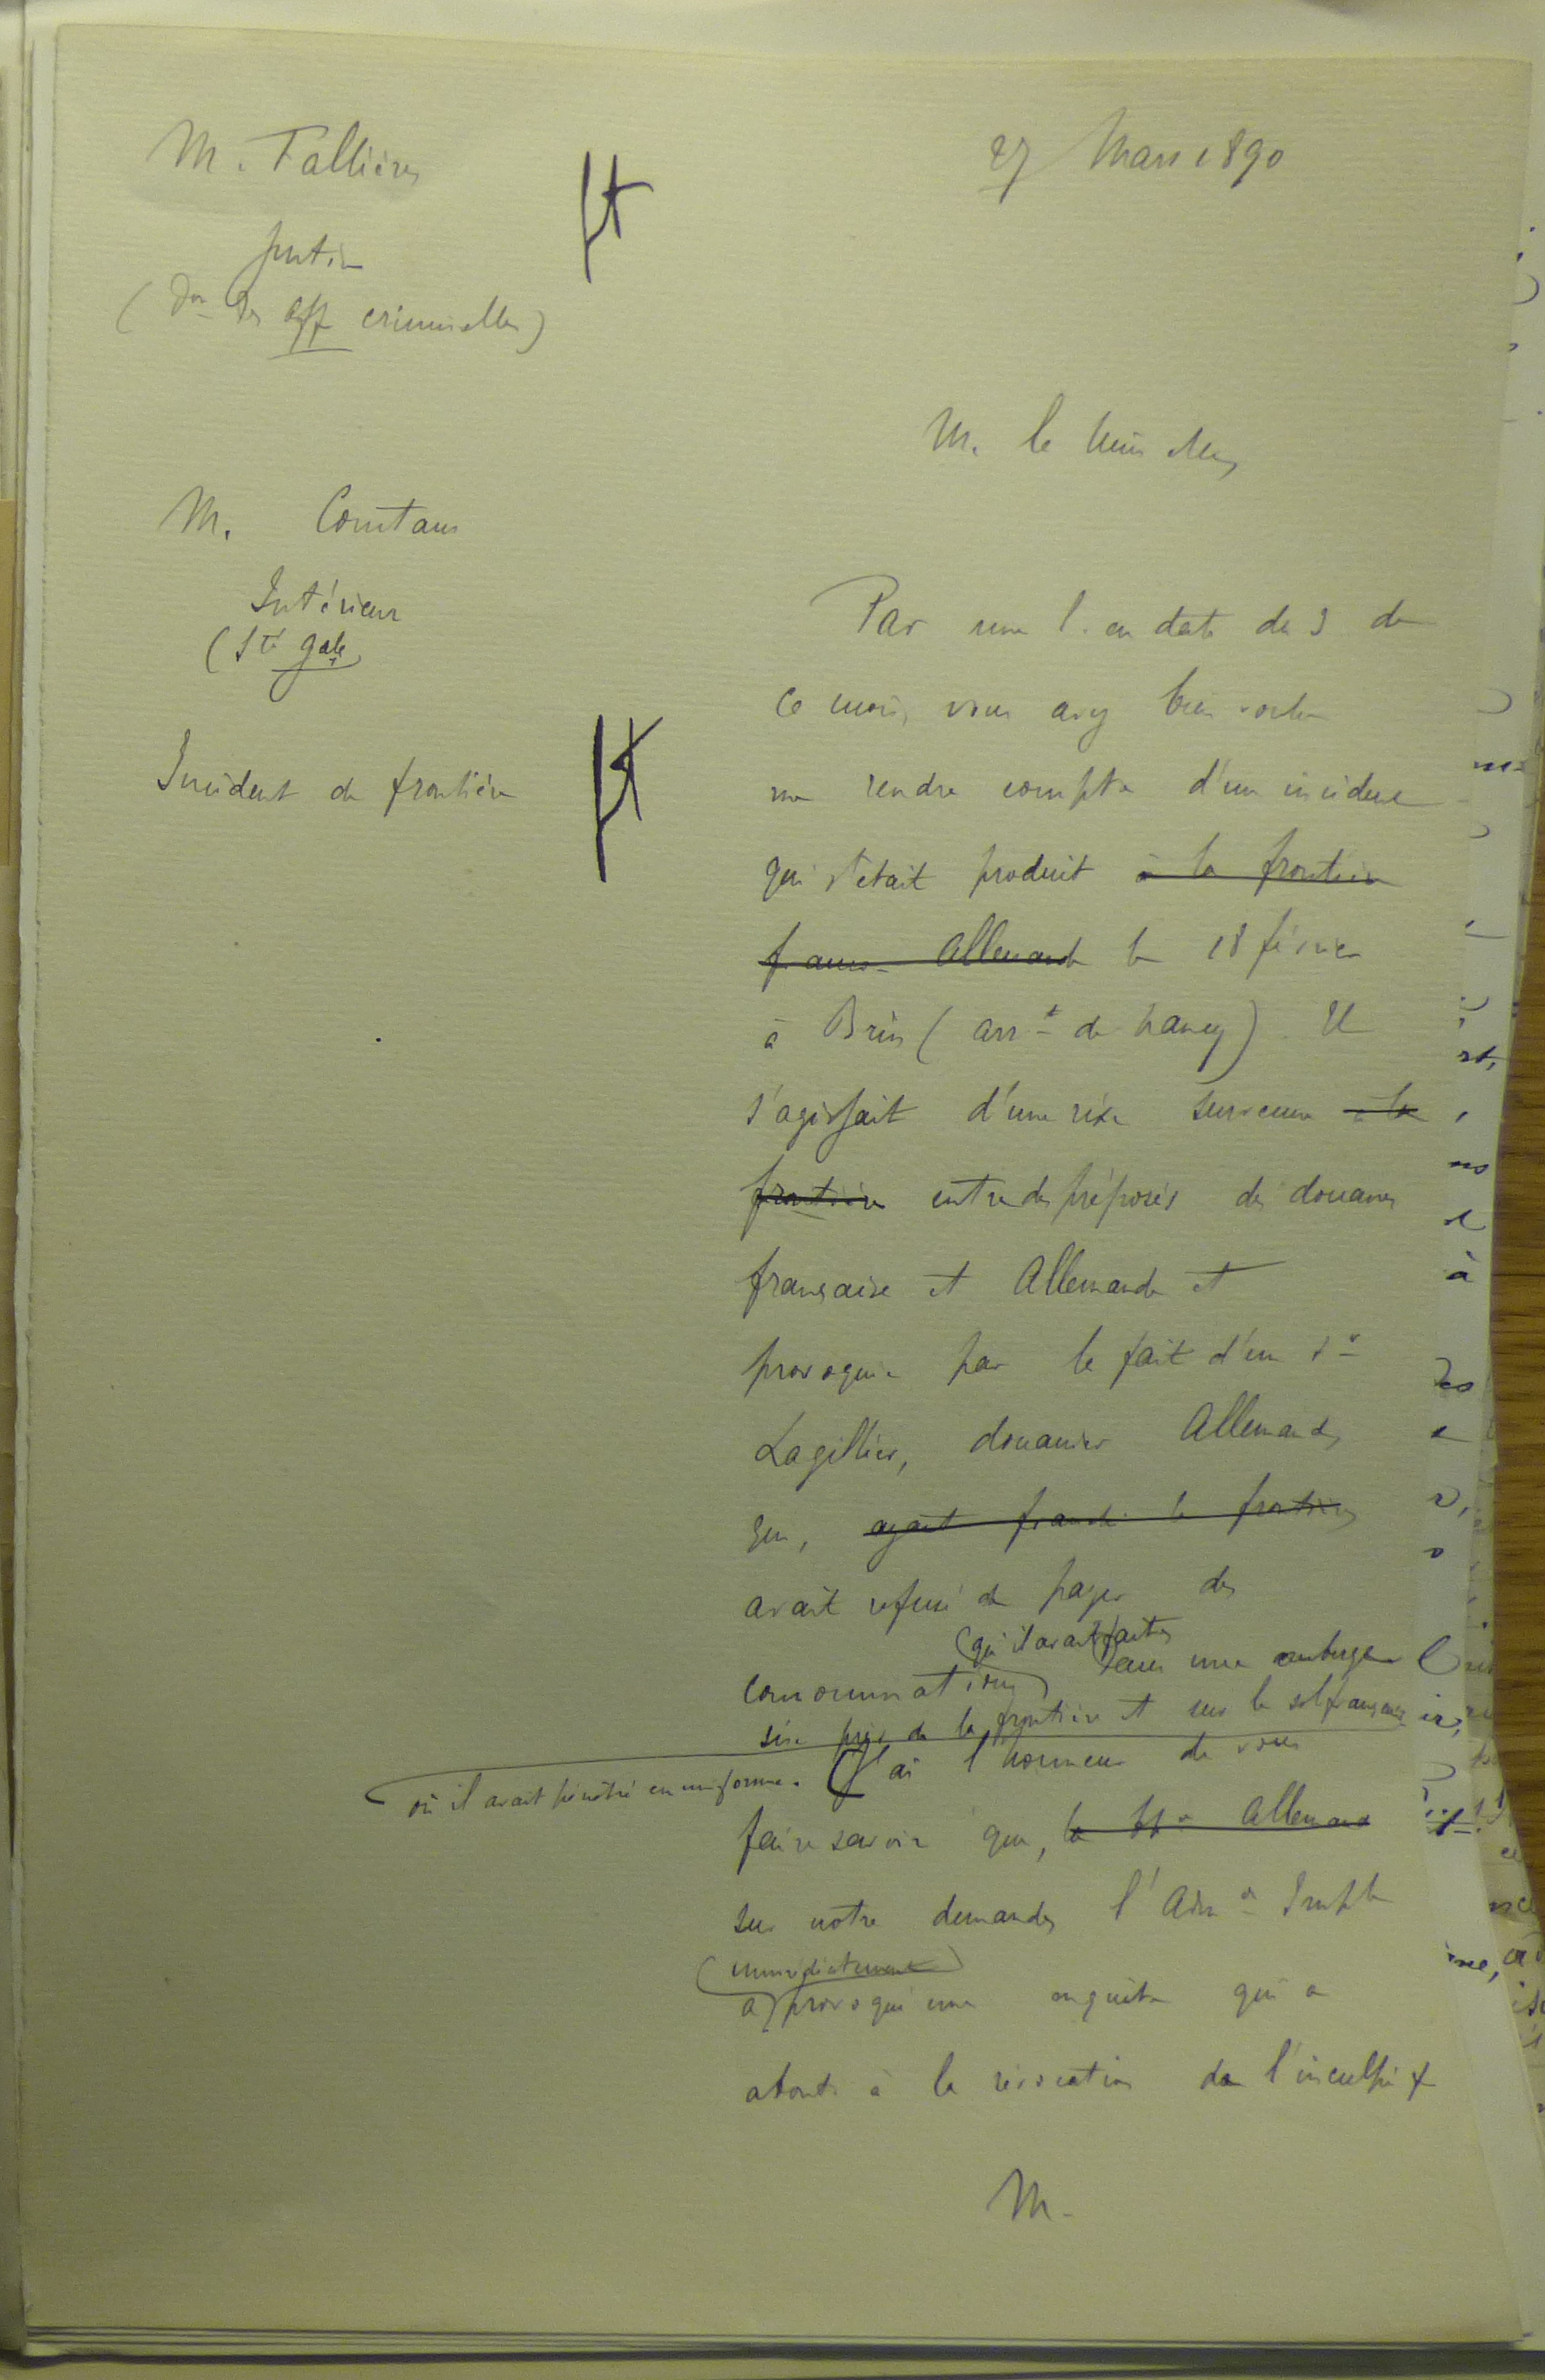 M. Fallières
27 Mars 1890
ft
Justice
(Don des aff criminelles)
M. le Ministre,
M. Constans
Intérieur
(Sté gale
Incident de frontière
ft
Par une l. en date du 3 de
ce mois, vous avez bien voulu
me rendre compte d'un incident
qui s'était produit à la frontière
franco-Allemande le 18 février
à Brin (arrt de Nancy). Il
s'agissait d'une rixe survenue à la
frontière entre des préposés des douanes
française et Allemande et
provoquée par le fait d'un sr
Lagillier, douanier Allemand,
qui, ayant franchi la frontière,
avait refusé de payer des
consommations qu'il avait faites dans une auberge
sise près de la frontière et sur le sol français
où il avait pénétré en uniforme. J'ai l'honneur de vous
faire savoir que, le Allemand
sur notre demande, l'Adon Imple
immédiatement
a provoqué une enquête qui a
abouti à la révocation de l'inculpé
M.